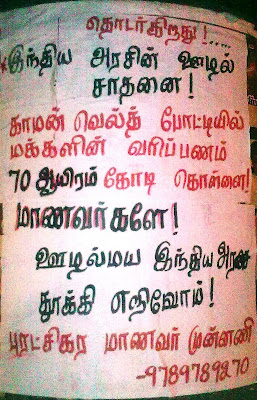 தொடர்கிறது!....
*இந்திய அரசின் ஊழல்
சாதனை!
காமன் வெல்த் போட்டியில்
மக்களின் வரிப்பணம்
70 ஆயிரம் கோடி கொள்ளை!
மாணவர்களே!
ஊழல்மய இந்திய அரசை
தூக்கி எறிவோம்!
புரட்சிகர மாணவர் முன்னணி
-9789789270